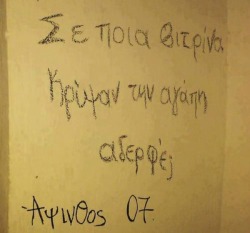 Σε ποια βιτρίνα
Κρύψαν την αγάπη
αδερφές
Άψινθος 07